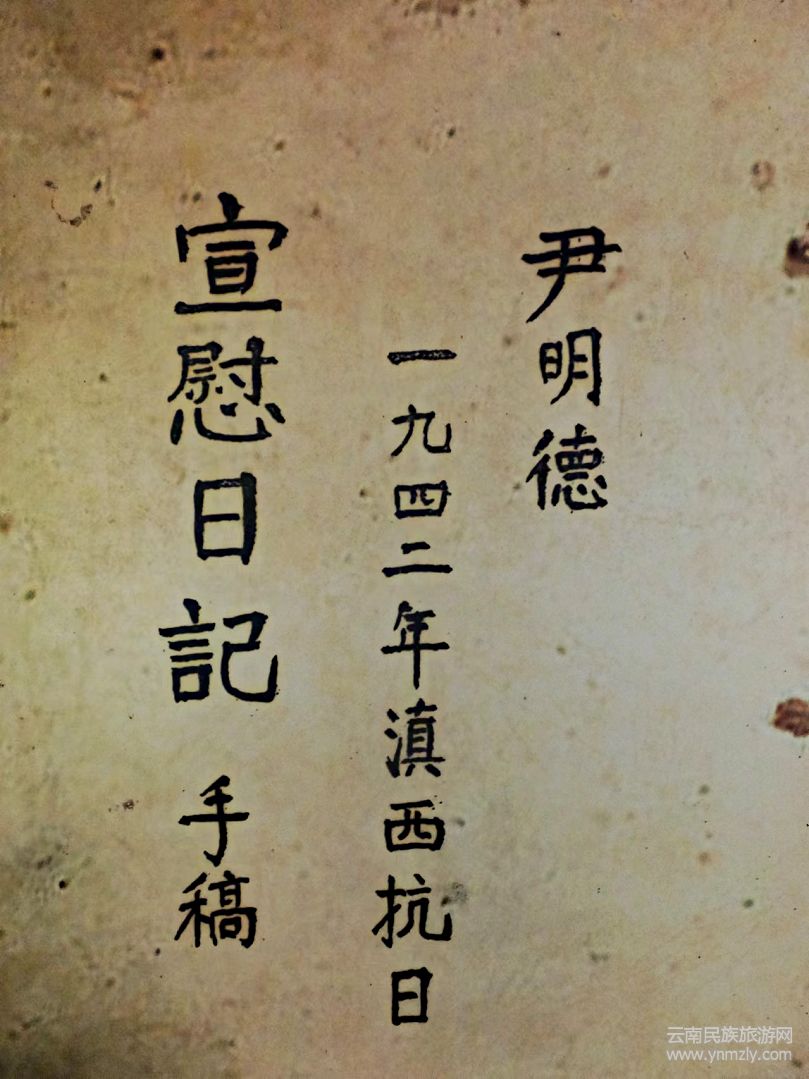 尹明德
一九四二年滇西抗日
宣慰日記 手稿
云南民族旅游网
www.ynmzly.com